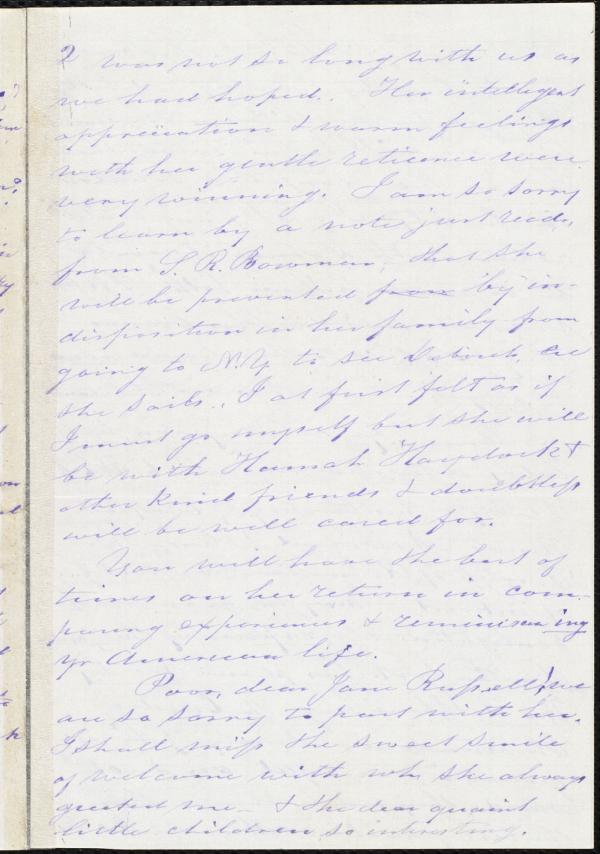 2 was not so long with us as
we had hoped. Her intelligent
appreciation & warm feelings
with her gentle reticence were
very winning. I am so sorry
to learn by a note just recd,
from S. R. Bowman, that she
will be prevented from by in-
disposition in her family from
going to N.Y. to see Deborah, ere
she sails. I at first felt as if
I must go myself but she will
be with Hannah Haydock &
other kind friends & doubtless
will be well cared for.
You will have the best of
times on her return in com-
paring experiences & reminiscen ing
yr American life.
Poor, dear Jane Russell! we
are so sorry to part with her.
I shall miss the sweet smile
of welcome with wh. she always
greeted me - & the dear quaint
little children so interesting.